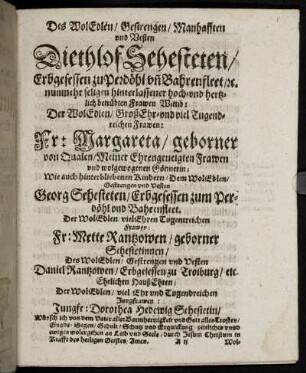 Des WolEdlen / Gestrengen / Manhafften
und Veßten
Diethlof Sehesteten /
Erbgesessen zu Perdöhl uñ Bahrenfleet / ꝛc.
nunmehr seligen hinterlassener hoch-und hertz-
lich betrübten Frawen Witib:
Der WolEdlen / Groß Ehr-und viel Tugend-
reichen Frawen:
Fr: Margareta / geborner
von Qualen / Meiner Ehrengeneigten Frawen
und wolgewogenen Gönnerin;
Wie auch hinterbliebenen Kindern / Dem WolEdlen /
Gestrengen und Veßten
Georg Sehesteten / Erbgesessen zum Per-
döhl und Bahrenfleet.
Der WolEdlen viel Ehren Tugentreichen
Frawen:
Fr: Mette Rantzowen / geborner
Sehestetinnen /
Des WolEdlen / Gestrengen und Veßten
Daniel Rantzowen / Erbgesessen zu Troiburg / etc
Ehelichen Hauß Ehren /
Der WolEdlen / viel Ehr und Tugendreichen
Jungfrawen:
Jungfr: Dorothea Hedewig Sehestetin /
Wünsch ich von dem Vater aller Barmhertzigkeit und Gott alles Trostes /
Gnade / Segen / Schutz und Erquickung zeitliches und
ewiges wolergehen an Leib und Seele / durch Jesum Christum in
Krafft des heiligen Geistes Amen.
A ij Wol-